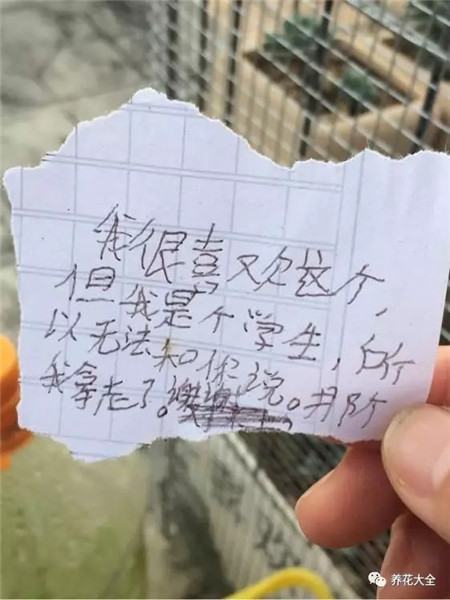 我很喜欢这个,
但我是个学生,所
以无法和你说。所
我拿走了。谢谢
养花大全